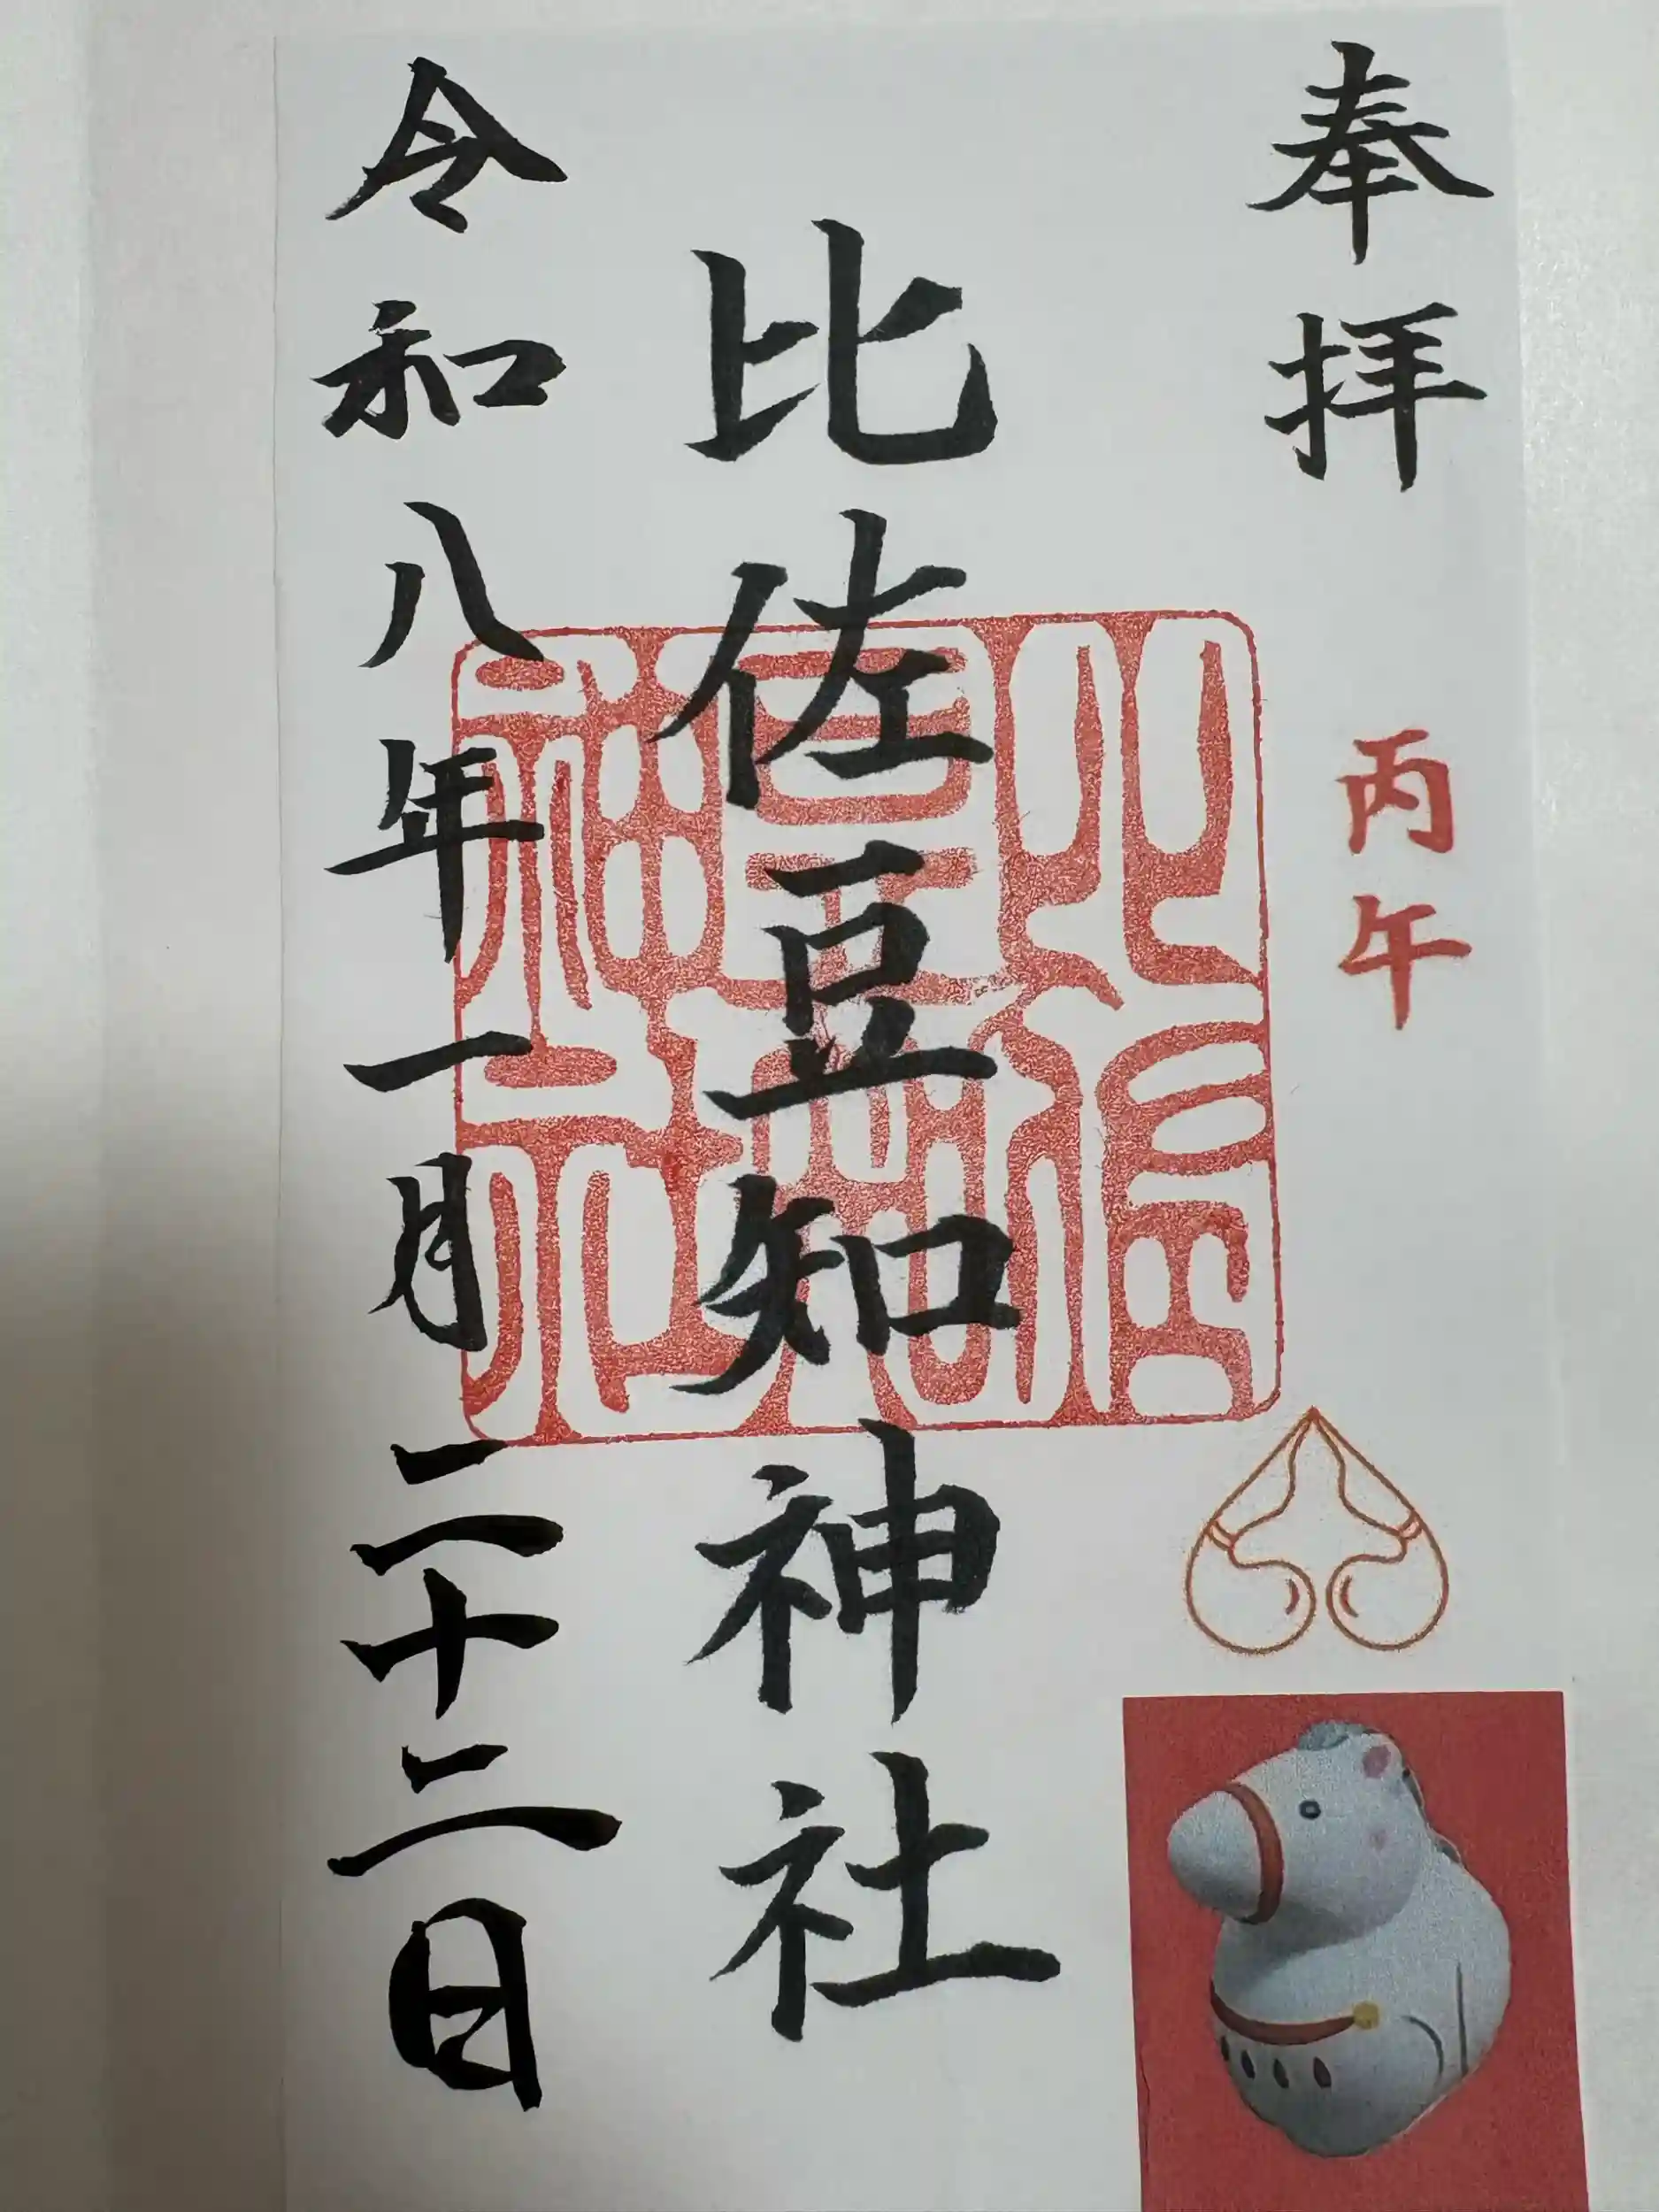 奉拝
丙午
比佐豆知神社
比佐豆知神社
令和八年一月二十二日